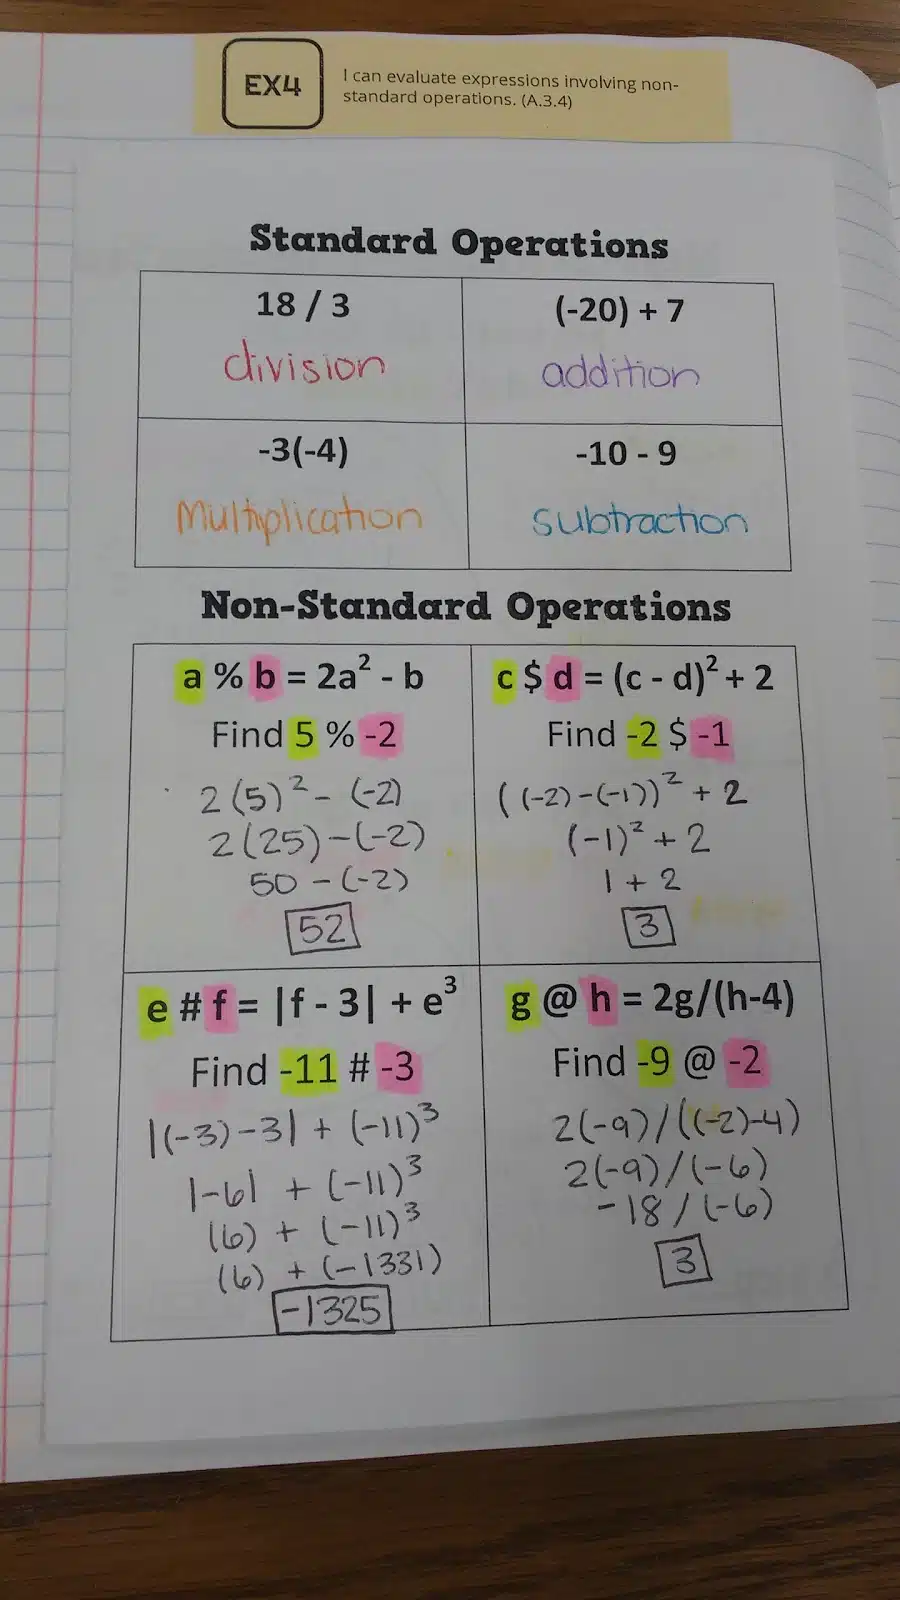 EX4
I can evaluate expressions involving non-
standard operations. (A.3.4)
Standard Operations
18 / 3
division
(-20) + 7
addition
-3(-4)
Multiplication
-10 - 9
subtraction
Non-Standard Operations
a % b = 2a² - b
Find 5 % -2
2(5)² - (-2)
2(25) - (-2)
50 - (-2)
52
c $ d = (c - d)² + 2
Find -2 $ -1
((-2)-(-1))² + 2
(-1)² + 2
1 + 2
3
e # f = |f - 3| + e³
Find -11 # -3
|(-3)-3| + (-11)³
|-6| + (-11)³
(6) + (-11)³
(6) + (-1331)
-1325
g @ h = 2g/(h-4)
Find -9 @ -2
2(-9)/((-2)-4)
2(-9)/(-6)
-18/(-6)
3